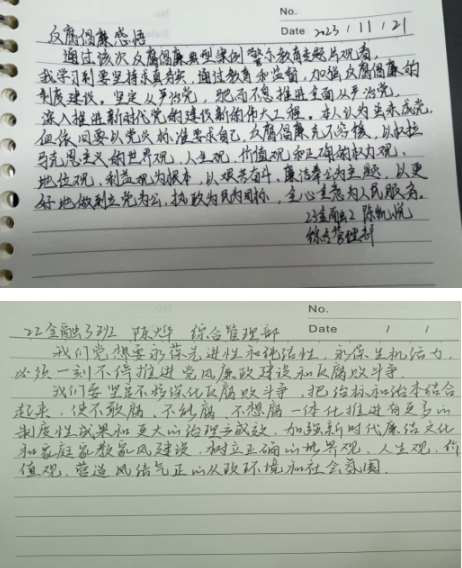 No.
Date 2023/11/21
反腐倡廉感悟
通过该次反腐倡廉典型案例警示教育主题片观看,
我学习到要坚持求真务实,通过教育和监督,加强反腐倡廉的
制度建设。坚定从严治党,驰而不息推进全面从严治党,
深入推进新时代党的建设新的伟大工程。本人认为当未成党,
但依同要以党员的准要求自己,反腐倡廉充不容缓,以树立
马克思主义的世界观,人生观,价值观和正确的权力观、
地位观,利益观为根本,以艰苦奋斗,廉洁奉公为主题,以更
好地做到立党为公,执政为民为目标,全心全意为人民服务。
综合管理部
No.
Date / /
22金融3班 陈烨 综合管理部
我们党想要永葆先进性和纯洁性,永葆生机活力,
必须一刻不停推进党风廉政建设和反腐败斗争。
我们要坚定不移深化反腐败斗争,把治标和治本结合
起来,使不敢腐,不能腐,不想腐一体化推进有更多的
制度性成果和更大的治理成效,加强新时代廉洁文化
和家庭家教家风建设,树立正确的世界观,人生观,价
值观,营造风清气正的从政环境和社会氛围.